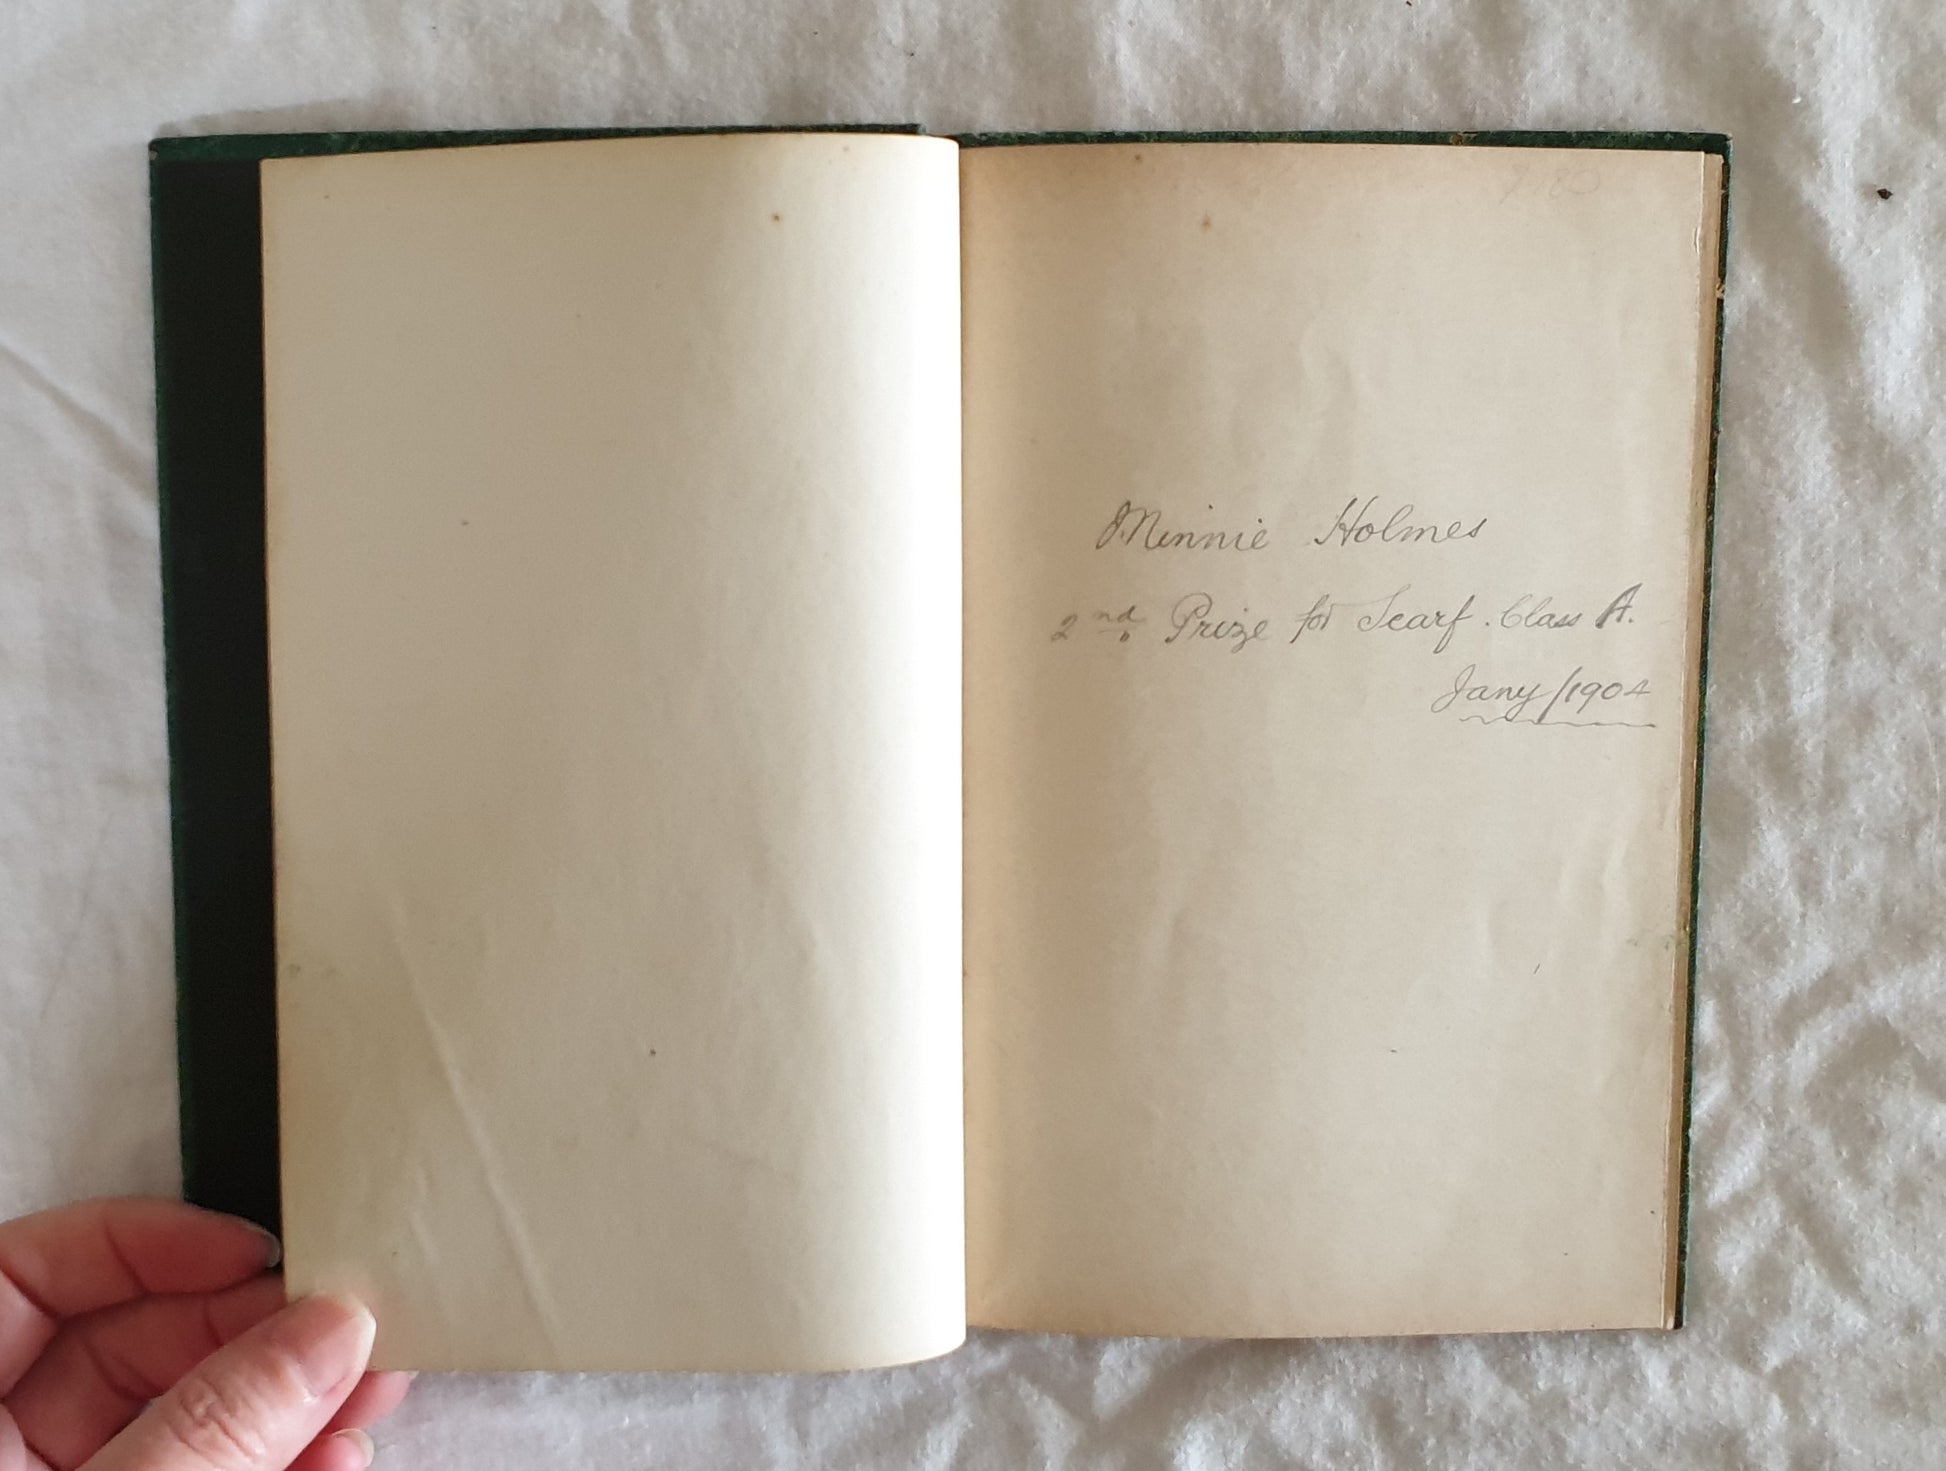 Minnie Holmes
2nd Prize for Scarf. Class A.
Jany/1904